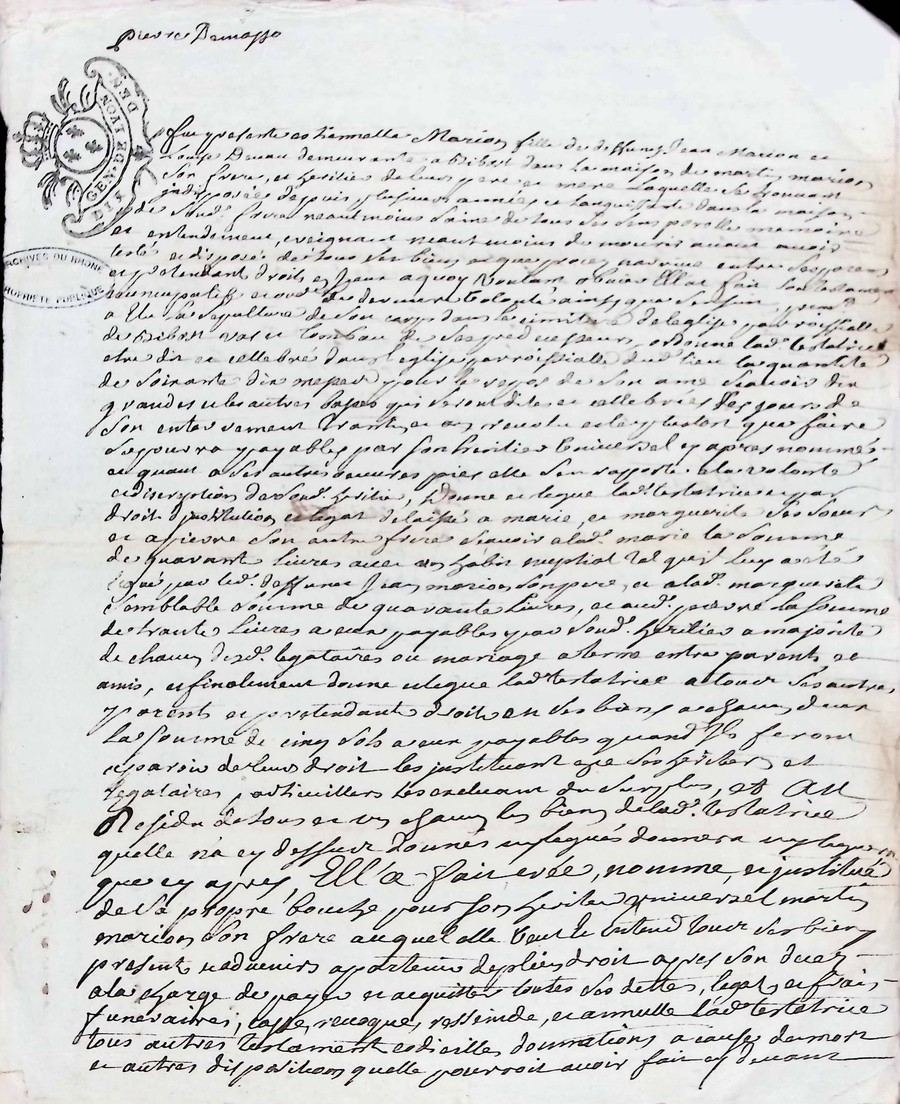 pierre Demasso
GEN. DE LYON
ARCHIVES DU RHONE
PROPRIETE PUBLIQUE
fut presente estiennette Marion fille de deffunts Jean Marion et
Louise demeurante a Ribost dans la maison de martin marion
son frere, et heritier de leurs pere et mere laquelle se trouvant
indisposée depuis plusieurs années et languissante dans la maison
de sond. frere neantmoins saine de tous ses sens parolle memoire
et entendement, creignant neantmoins de mourir avant avoir
testé et disposé de tous ses biens et que procez narrive entre ses parens
et pretendant droits en iceux a quoy voulant obvier Elle a fait son testament
nouncupatif et ord. de derniere volonté ainsy que sensuit, prem.
a Elu la sepulture de son corps dans le cimitiere de leglise parroissialle
de Ribost et au tombeau de ses predecesseurs, ordonne lad. testatrice
estre dit et cellebré dans leglise parroissialle dud. lieu la quantité
de soixante dix messes pour le repos de son ame scavoir dix
grandes et les autres basses qui seront dites et cellebrées les jours de
son enterrement trantes et an revolu et le plustost que faire
se pourra payables par son heritier universel cy apres nommés
et quant a ses autres oeuvres pies elle sen rapporte a la volonté
et discreption de sond. heritier, Donne et legue lad. testatrice et par
droit d'institution et legat delaissé a marie, et marguerite ses soeurs
et a pierre son autre frere scavoir a lad. marie la somme
de quarante livres avec un habit nuptial tel qu'il luy a eté
legué par led. deffunt Jean marion son pere, et a lad. marguerite
semblable somme de quarante livres, et aud. pierre la somme
de trante livres a eux payables par sond. heritier a majorite
de chacun desd. legataires ou mariage a terme entre parents et
amis, et finalement donne et legue lad. testatrice a tous ses autres
parents et pretendants droit en ses biens a chacun deux
la somme de cinq sols a eux payables quand Ils feront
aparoir de leur droit les instituant ses heritiers et
legataires particulliers les excluant du surplus, et Au
Residu de tous et un chacun les biens de lad. testatrice
quelle n'a cy dessus donnés et legués donnera
que cy aprés, Ell'a fait créé, nommé, et institué
de sa propre bouche pour son heritier universel martin
marion son frere auquel elle veut et entend tous ses biens
present et advenirs apartenir de plein droit apres son decez
a la charge de payer et acquitter toutes ses dettes, legats et frais
funeraires; casse, revoque, ressinde, et annulle lad. testatrice
tous autres testament codicilles donnations a cause de mort
et autres dispositions quelle pourroit avoir fait cy devant